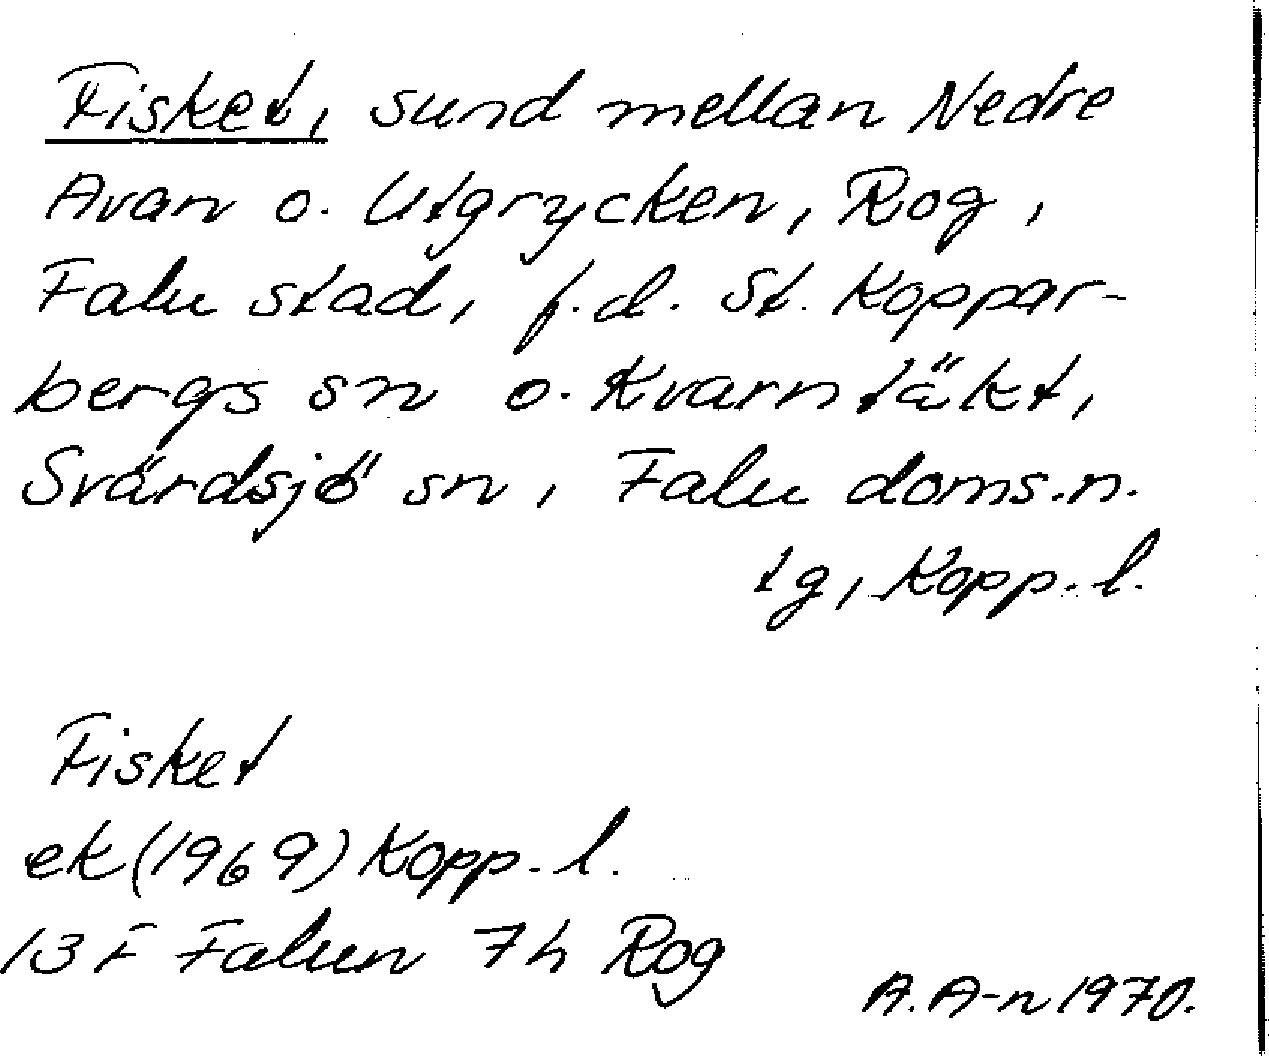 Fisket, sund mellan Nedre
Avan o. Utgrycken, Rog,
Falu stad, f.d. St. Koppar-
bergs sn o. Kvarntäkt,
Svärdsjö sn, Falu doms.n.
tg, Kopp. l.
Fisket
ek (1969) Kopp. l.
13 F Falun 7 h Rog
A. A-n 1970.